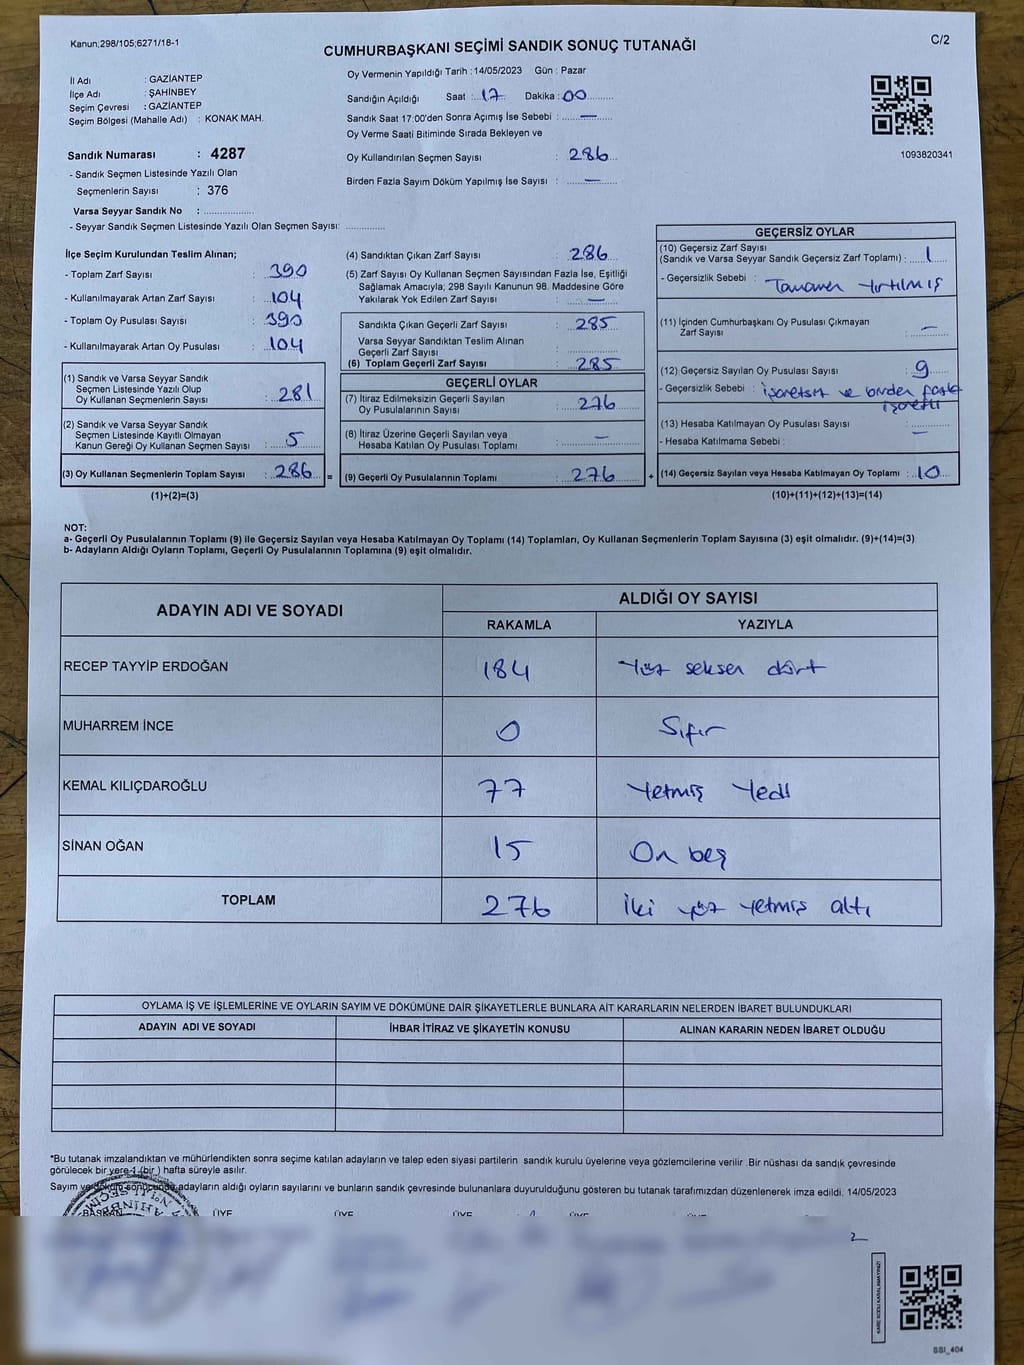 Kanun;298/105;6271/18-1
CUMHURBAŞKANI SEÇİMİ SANDIK SONUÇ TUTANAĞI
C/2
İl Adı : GAZİANTEP
İlçe Adı : ŞAHİNBEY
Seçim Çevresi : GAZİANTEP
Seçim Bölgesi (Mahalle Adı) : KONAK MAH.
Oy Vermenin Yapıldığı Tarih : 14/05/2023 Gün : Pazar
Sandığın Açıldığı Saat : 17 Dakika : 00
Sandık Saat 17:00'den Sonra Açımış İse Sebebi : —
Oy Verme Saati Bitiminde Sırada Bekleyen ve
Oy Kullandırılan Seçmen Sayısı : 286
Birden Fazla Sayım Döküm Yapılmış İse Sayısı : —
1093820341
Sandık Numarası : 4287
- Sandık Seçmen Listesinde Yazılı Olan
Seçmenlerin Sayısı : 376
Varsa Seyyar Sandık No : ................
- Seyyar Sandık Seçmen Listesinde Yazılı Olan Seçmen Sayısı: ............
İlçe Seçim Kurulundan Teslim Alınan;
- Toplam Zarf Sayısı : 390
- Kullanılmayarak Artan Zarf Sayısı : 104
- Toplam Oy Pusulası Sayısı : 390
- Kullanılmayarak Artan Oy Pusulası : 104
(1) Sandık ve Varsa Seyyar Sandık
Seçmen Listesinde Yazılı Olup
Oy Kullanan Seçmenlerin Sayısı : 281
(2) Sandık ve Varsa Seyyar Sandık
Seçmen Listesinde Kayıtlı Olmayan
Kanun Gereği Oy Kullanan Seçmen Sayısı : 5
(3) Oy Kullanan Seçmenlerin Toplam Sayısı : 286 =
(1)+(2)=(3)
(4) Sandıktan Çıkan Zarf Sayısı : 286
(5) Zarf Sayısı Oy Kullanan Seçmen Sayısından Fazla İse, Eşitliği
Sağlamak Amacıyla; 298 Sayılı Kanunun 98. Maddesine Göre
Yakılarak Yok Edilen Zarf Sayısı : —
Sandıkta Çıkan Geçerli Zarf Sayısı : 285
Varsa Seyyar Sandıktan Teslim Alınan
Geçerli Zarf Sayısı : ............
(6) Toplam Geçerli Zarf Sayısı : 285
GEÇERLİ OYLAR
(7) İtiraz Edilmeksizin Geçerli Sayılan
Oy Pusulalarının Sayısı : 276
(8) İtiraz Üzerine Geçerli Sayılan veya
Hesaba Katılan Oy Pusulası Toplamı : —
(9) Geçerli Oy Pusulalarının Toplamı : 276 +
GEÇERSİZ OYLAR
(10) Geçersiz Zarf Sayısı
(Sandık ve Varsa Seyyar Sandık Geçersiz Zarf Toplamı) : 1
- Geçersizlik Sebebi : Tamamen Yırtılmış
(11) İçinden Cumhurbaşkanı Oy Pusulası Çıkmayan
Zarf Sayısı : —
(12) Geçersiz Sayılan Oy Pusulası Sayısı : 9
- Geçersizlik Sebebi : İşaretsiz ve birden fazla
işaretli
(13) Hesaba Katılmayan Oy Pusulası Sayısı : —
- Hesaba Katılmama Sebebi :
(14) Geçersiz Sayılan veya Hesaba Katılmayan Oy Toplamı : 10
(10)+(11)+(12)+(13)=(14)
NOT:
a- Geçerli Oy Pusulalarının Toplamı (9) ile Geçersiz Sayılan veya Hesaba Katılmayan Oy Toplamı (14) Toplamları, Oy Kullanan Seçmenlerin Toplam Sayısına (3) eşit olmalıdır. (9)+(14)=(3)
b- Adayların Aldığı Oyların Toplamı, Geçerli Oy Pusulalarının Toplamına (9) eşit olmalıdır.
ADAYIN ADI VE SOYADI
ALDIĞI OY SAYISI
RAKAMLA YAZIYLA
RECEP TAYYİP ERDOĞAN 184 Yüz seksen dört
MUHARREM İNCE 0 Sıfır
KEMAL KILIÇDAROĞLU 77 Yetmiş Yedi
SİNAN OĞAN 15 On beş
TOPLAM 276 İki yüz yetmiş altı
OYLAMA İŞ VE İŞLEMLERİNE VE OYLARIN SAYIM VE DÖKÜMÜNE DAİR ŞİKAYETLERLE BUNLARA AİT KARARLARIN NELERDEN İBARET BULUNDUKLARI
ADAYIN ADI VE SOYADI İHBAR İTİRAZ VE ŞİKAYETİN KONUSU ALINAN KARARIN NEDEN İBARET OLDUĞU
*Bu tutanak imzalandıktan ve mühürlendikten sonra seçime katılan adayların ve talep eden siyasi partilerin sandık kurulu üyelerine veya gözlemcilerine verilir. Bir nüshası da sandık çevresinde
görülecek bir yere 1 (bir ) hafta süreyle asılır.
Sayım ve döküm sonucunda adayların aldığı oyların sayılarını ve bunların sandık çevresinde bulunanlara duyurulduğunu gösteren bu tutanak tarafımızdan düzenlenerek imza edildi. 14/05/2023
BAŞKAN ÜYE ÜYE ÜYE ÜYE ÜYE
KARE KODU KARALAMAYINIZ!
SSI_404